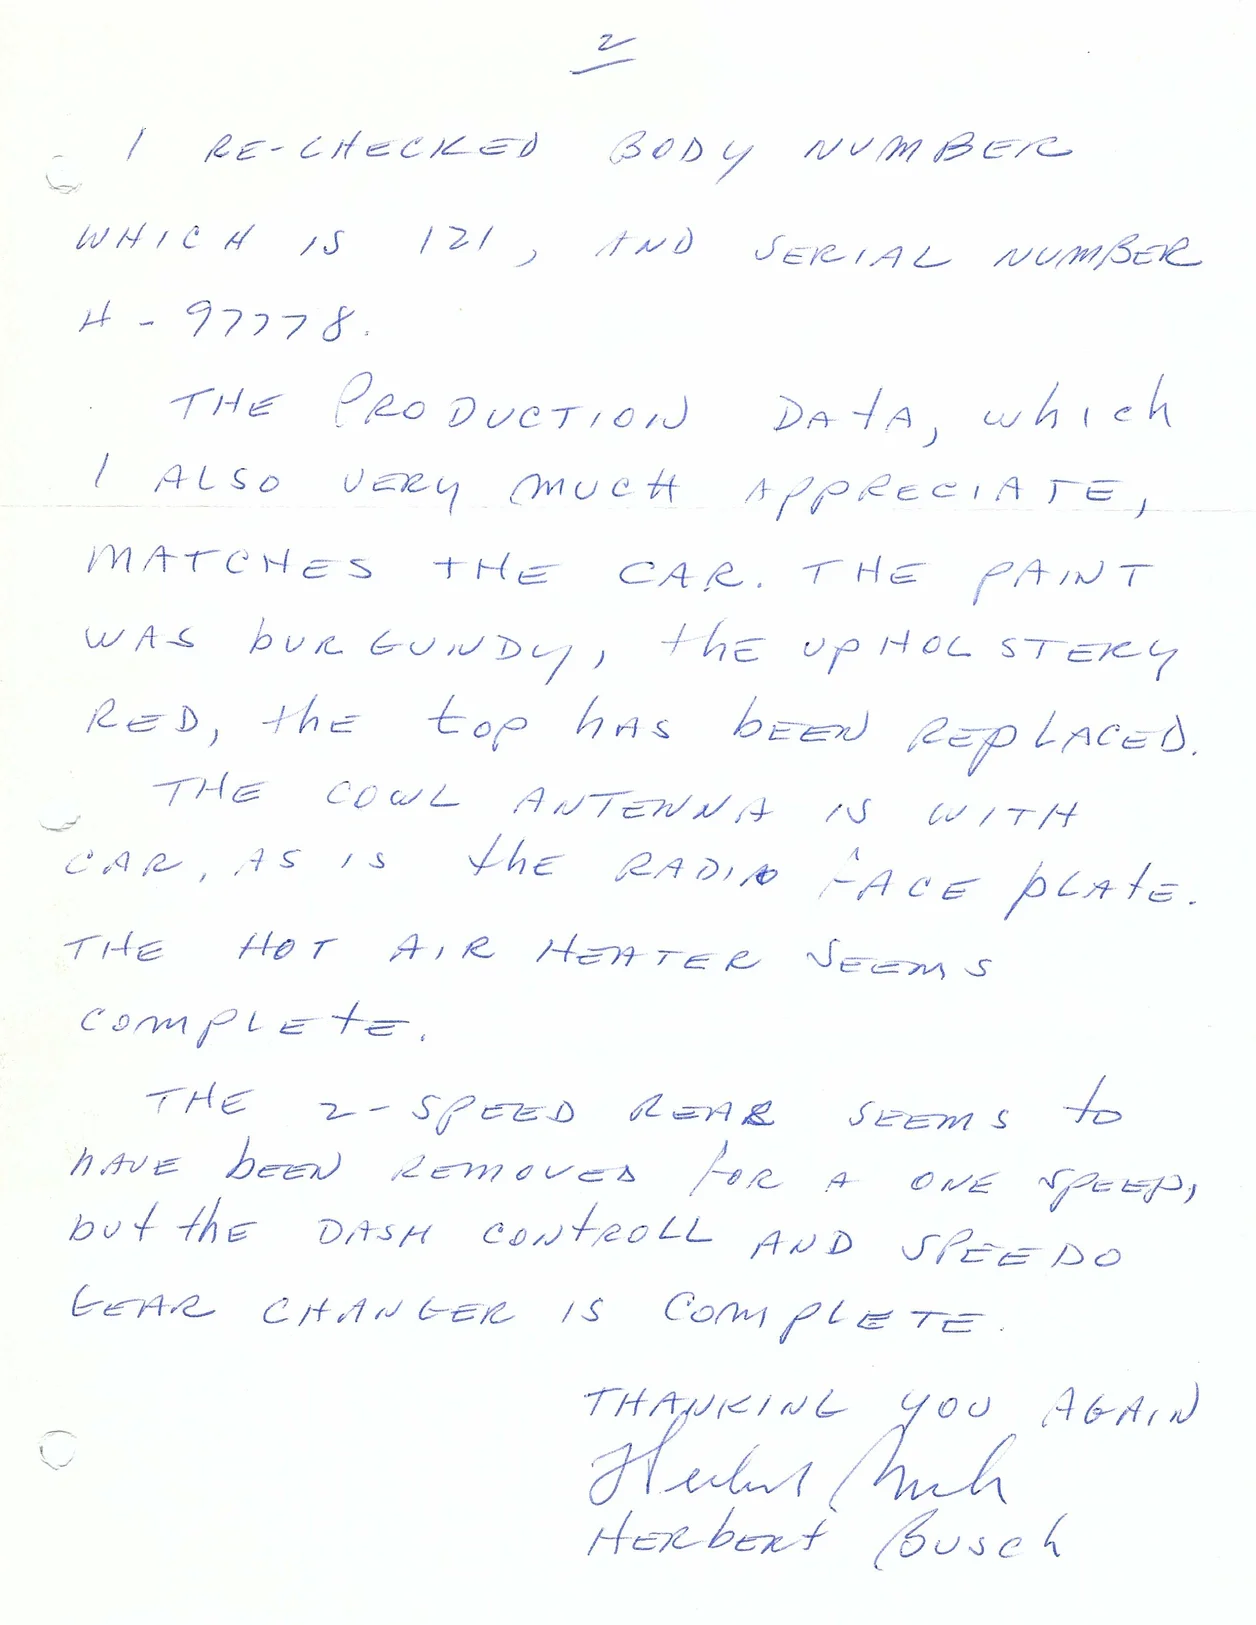 2
I RE-CHECKED BODY NUMBER
WHICH IS 121, AND SERIAL NUMBER
H-97778.
THE PRODUCTION DATA, which
I ALSO VERY MUCH APPRECIATE,
MATCHES THE CAR. THE PAINT
WAS bURGUNDY, thE UPHOLSTERY
RED, thE top hAS bEEN REPLACED.
THE COWL ANTENNA IS WITH
CAR, AS IS thE RADIO FACE PLAtE.
THE HOT AIR HEATER SEEMS
COMPLEtE.
THE 2-SPEED REAR SEEMS to
hAVE bEEN REMOVED FOR A ONE SPEED,
but thE DASH CONtROLL AND SPEEDO
GEAR CHANGER IS COMPLETE.
THANKING YOU AGAIN
Herbert Busch
HERbERt Busch